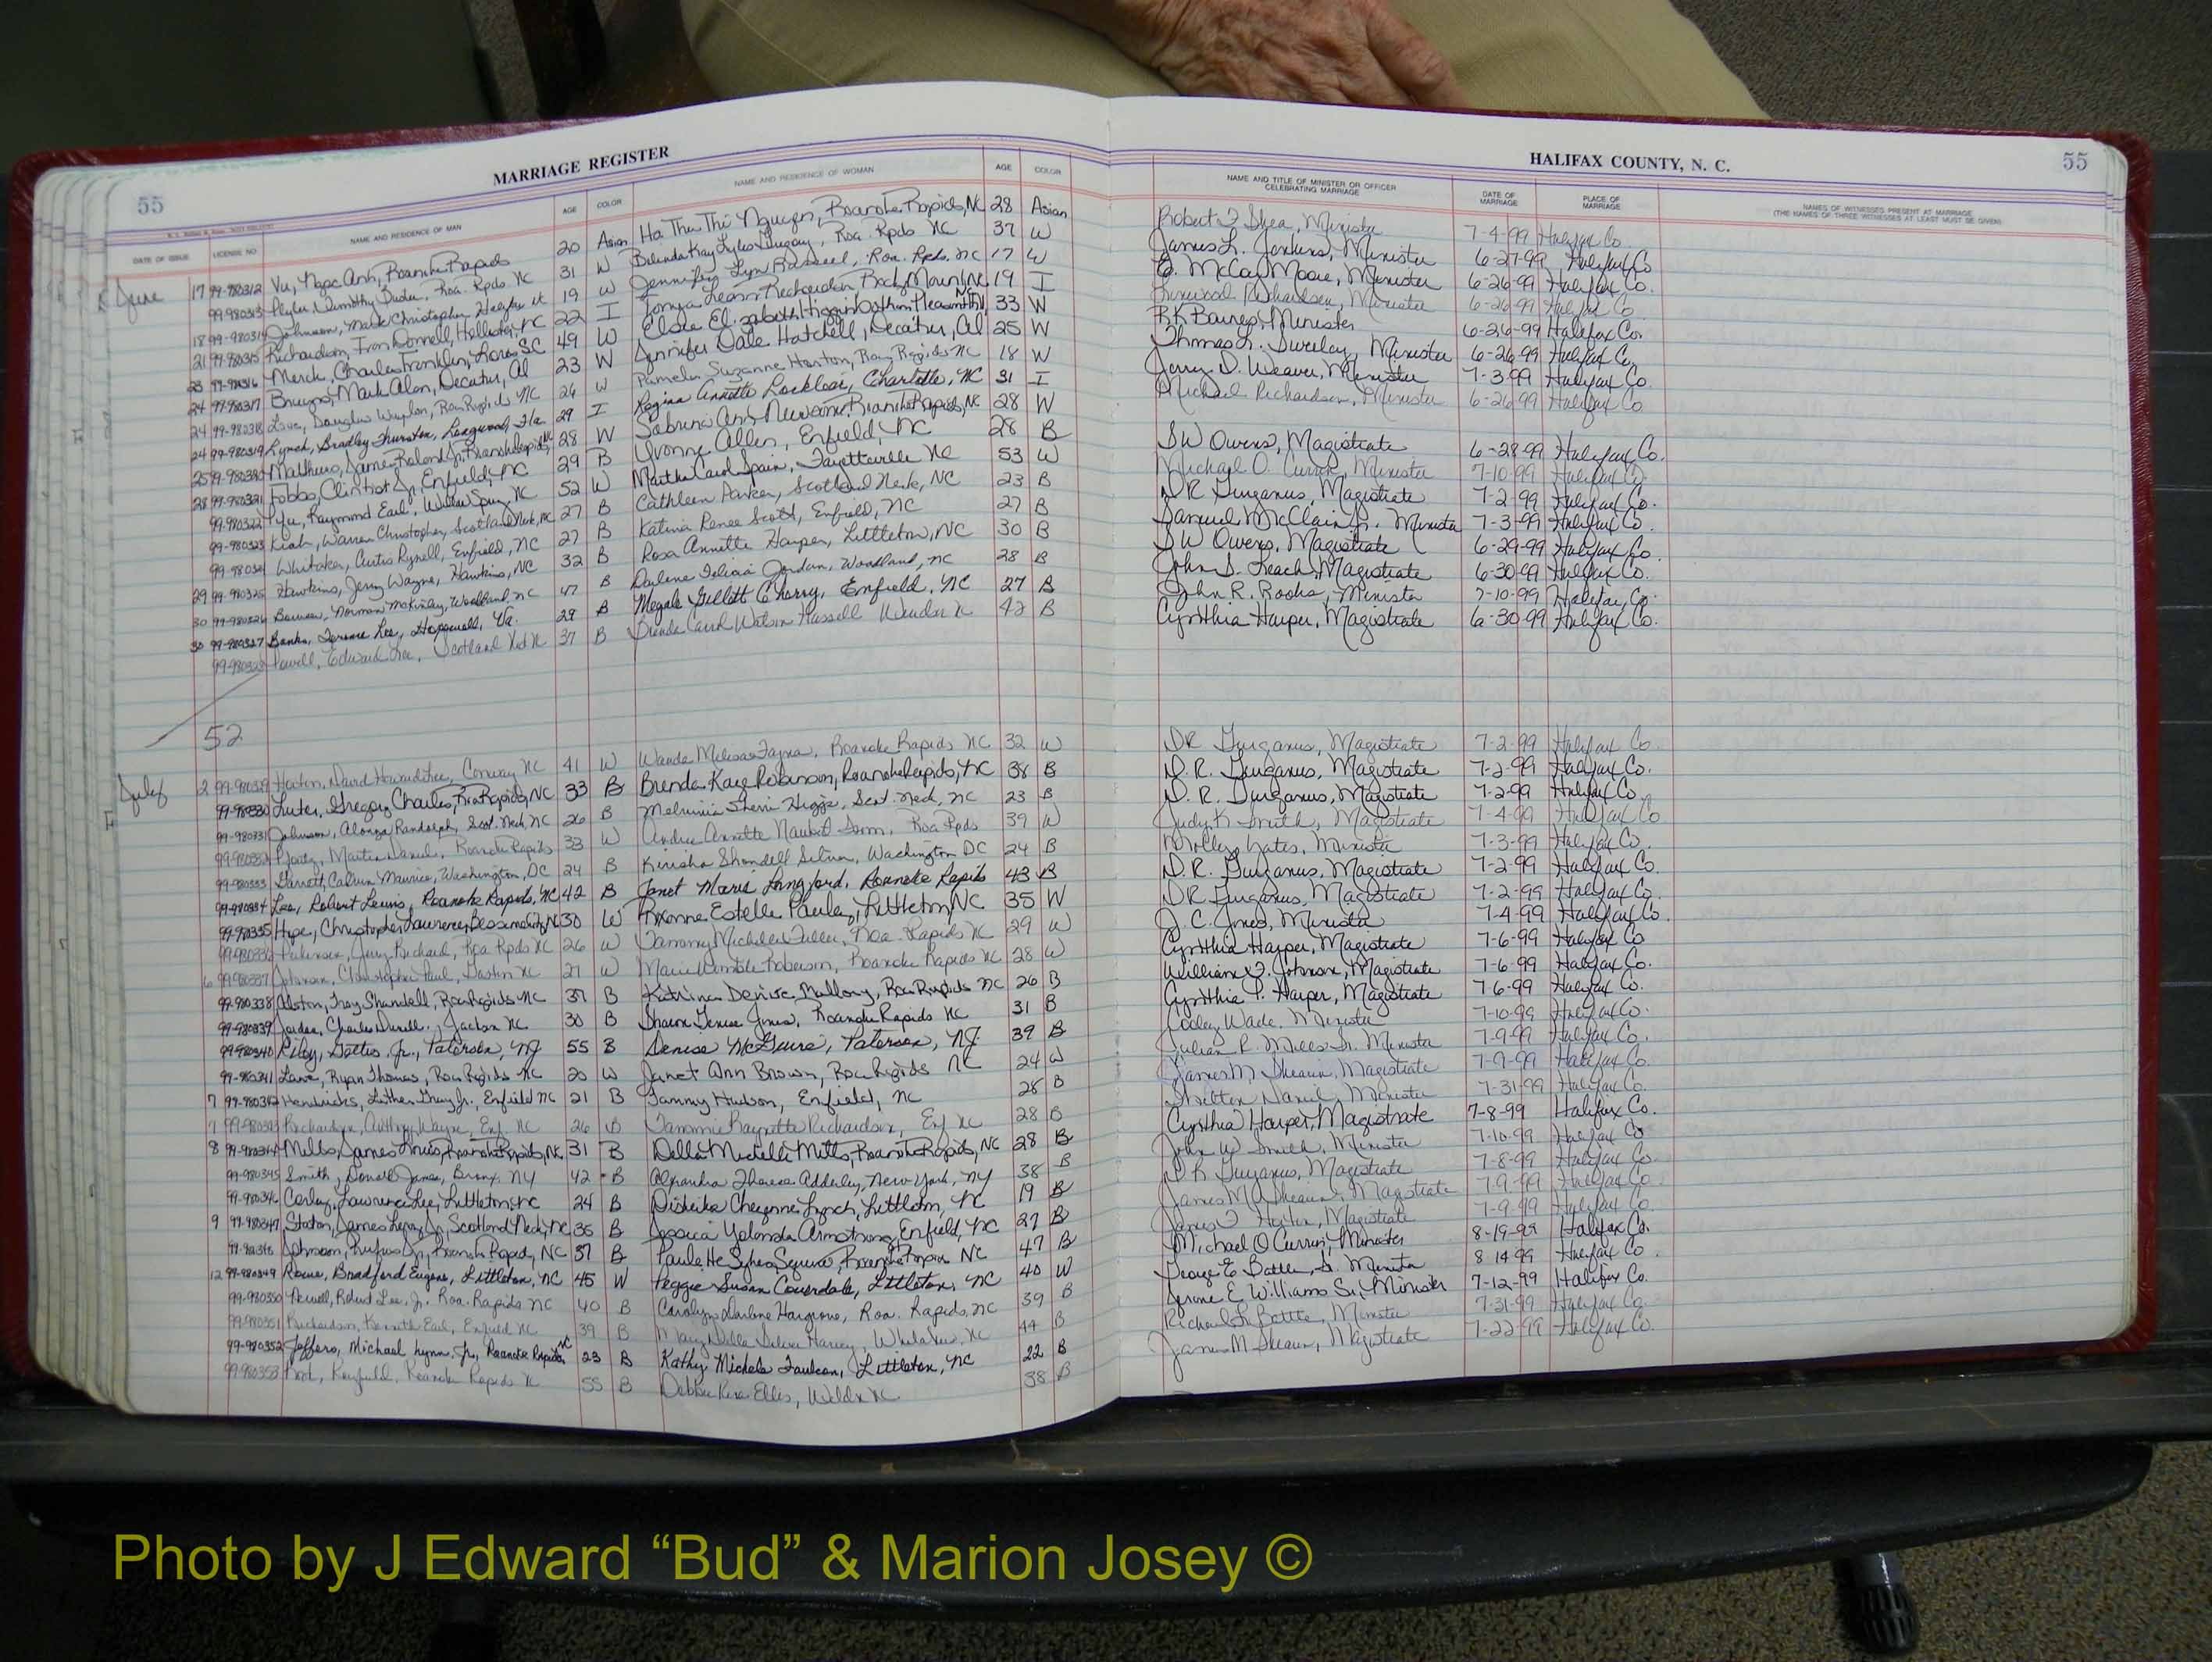 55
MARRIAGE REGISTER
HALIFAX COUNTY, N. C.
55
DATE OF ISSUE LICENSE NO NAME AND RESIDENCE OF MAN AGE COLOR NAME AND RESIDENCE OF WOMAN AGE COLOR NAME AND TITLE OF MINISTER OR OFFICER CELEBRATING MARRIAGE DATE OF MARRIAGE PLACE OF MARRIAGE NAMES OF WITNESSES PRESENT AT MARRIAGE (THE NAMES OF THREE WITNESSES AT LEAST MUST BE GIVEN)
June 17 99-980312 Vu, Ngoc Anh, Roanoke Rapids 20 Asian Ha Thu Thi Nguyen, Roanoke Rapids, NC 28 Asian Robert Shea, Minister 7-4-99 Halifax Co.
99-980313 Timothy Roa. Rpds NC 31 W Belinda Kay Lyles Roa. Rpds NC 37 W James L. Jenkins, Minister 6-27-99 Halifax Co
18 99-980314 Johnson, Mark Christopher 19 W Jennifer Lyn Roa. Rpds. NC 17 W McCoy Moore, Minister 6-26-99 Halifax Co.
21 99-980315 Richardson, Donnell, Hollister, NC 22 I Tonya Leann Richardson Rocky Mount, NC 19 I Linwood Richardson, Minister 6-26-99 Halifax Co
23 99-980316 Merck, Charles Franklin, SC 49 W Elsie Elizabeth Higginbotham 33 W R.K. Barnes, Minister 6-26-99 Halifax Co.
24 99-980317 Bruno, Mark Alan, Decatur, Al 23 W Jennifer Dale Hatchell, Decatur, Al 25 W Thomas L. Minister 6-26-99 Halifax Co,
24 99-980318 Love, Douglas NC 26 W Pamela Suzanne NC 18 W Jerry D. Weaver, Minister 7-3-99 Halifax Co.
24 99-980319 Lynch, Bradley Thurston, Longwood, Fla 29 I Regina Annette Locklear, Charlotte, NC 31 I Michael Richardson, Minister 6-26-99 Halifax Co
25 99-980320 Mathews, James Roland Jr. Roanoke Rapids, NC 28 W Sabrina Ann Newsome Roanoke Rapids, NC 28 W
28 99-980321 Fobbs, Clinton Jr, Enfield, NC 29 B Yvonne Allen, Enfield, NC 28 B SW Owens, Magistrate 6-28-99 Halifax Co.
99-980322 Pyle, Raymond Earl, Willow Spring NC 52 W Martha Carol Spain, Fayetteville NC 53 W Michael O. Minister 7-10-99 Halifax Co.
99-980323 Warren Christopher, Scotland Neck, NC 27 B Cathleen Parker, Scotland Neck, NC 23 B DR Gurganus, Magistrate 7-2-99 Halifax Co.
99-980324 Whitaker, Curtis Enfield, NC 27 B Katina Renee Scott, Enfield, NC 27 B Samuel McClain Jr. Minister 7-3-99 Halifax Co.
29 99-980325 Hawkins, Jerry Wayne, Hawkins, NC 32 B Rosa Annette Harper, Littleton, NC 30 B SW Owens, Magistrate 6-29-99 Halifax Co.
30 99-980326 Norman McKinley, Woodland, NC 47 B Darlene Felicia Jordan, Woodland, NC 28 B John S. Leach, Magistrate 6-30-99 Halifax Co.
30 99-980327 Banks, Terence Lee, Hopewell, Va. 29 B Megale Gillett Cherry, Enfield, NC 27 B John R. Rooks, Minister 7-10-99 Halifax Co.
99-980328 Powell, Edward Lee, Scotland Nk NC 37 B Brenda Carol Watson 42 B Cynthia Harper, Magistrate 6-30-99 Halifax Co.
52
July 2 99-980329 David Conway NC 41 W Wanda Melissa Roanoke Rapids NC 32 W DR Gurganus, Magistrate 7-2-99 Halifax Co.
99-980330 Luter, Gregory Charles, Roa Rapids, NC 33 B Brenda Kaye Robinson, Roanoke Rapids, NC 38 B D. R. Gurganus, Magistrate 7-2-99 Halifax Co.
99-980331 Johnson, Alonza Randolph, Scot. Neck, NC 26 B Scot. Neck, NC 23 B D. R. Gurganus, Magistrate 7-2-99 Halifax Co.
99-980332 Martin Daniel, Roanoke Rapids 33 W Andrea Annette Roa Rpds 39 W Judy K Smith, Magistrate 7-4-99 Halifax Co
99-980333 Garrett, Calvin Maurice, Washington, DC 24 B Shondell Washington DC 24 B Yates, Minister 7-3-99 Halifax Co.
99-980334 Lee, Robert Lewis, Roanoke Rapids, NC 42 B Janet Marie Langford, Roanoke Rapids 43 B D.R. Gurganus, Magistrate 7-2-99 Halifax Co.
99-980335 Hope, Christopher Lawrence, 30 W Roxanne Estelle Littleton, NC 35 W DR Gurganus, Magistrate 7-2-99 Halifax Co.
99-980336 Jerry Richard, Roa Rpds NC 26 W Tammy Michelle Roa. Rapids NC 29 W J. C. Jones, Minister 7-4-99 Halifax Co.
6 99-980337 Johnson, Christopher Paul, Gaston NC 27 W Marie Roanoke Rapids NC 28 W Cynthia Harper, Magistrate 7-6-99 Halifax Co
99-980338 Alston, Troy Shandell, Roa Rapids NC 37 B Katrina Denise Mallory, Roa Rapids NC 26 B William Johnson, Magistrate 7-6-99 Halifax Co.
99-980339 Jordan, Charles Jackson NC 30 B Sharon Jones, Roanoke Rapids NC 31 B Cynthia P. Harper, Magistrate 7-6-99 Halifax Co.
99-980340 Riley, Jr., Paterson, NJ 55 B Denise McGuire, Paterson, NJ. 39 B Cooley Wade, Minister 7-10-99 Halifax Co.
99-980341 Lane, Ryan Thomas, Roa Rapids NC 20 W Janet Ann Brown, Roa Rapids NC 24 W Julian R. Mills Sr. Minister 7-9-99 Halifax Co.
7 99-980342 Hendricks, Luther Jr., Enfield NC 21 B Tammy Hudson, Enfield, NC 28 B James M. Shearin, Magistrate 7-9-99 Halifax Co.
7 99-980343 Richardson, Anthony Wayne, Enf. NC 26 B Tammie Richardson, Enf NC 28 B Daniel, Minister 7-31-99 Halifax Co.
8 99-980344 Mills, James Roanoke Rapids, NC 31 B Della Michelle Mills, Roanoke Rapids, NC 28 B Cynthia Harper, Magistrate 7-8-99 Halifax Co.
99-980345 Smith, Donell James, Bronx, NY 42 B Alexandra Theresa Adderley, New York, NY 38 B John W Smith, Minister 7-10-99 Halifax Co
99-980346 Lawrence Lee, Littleton, NC 24 B Cheyenne Lynch, Littleton, NC 19 B DR Gurganus, Magistrate 7-8-99 Halifax Co.
9 99-980347 Staton, James Leroy, Jr, Scotland Neck, NC 36 B Jessica Yolanda Armstrong, Enfield, NC 27 B James M Shearin, Magistrate 7-9-99 Halifax Co
99-980348 Johnson, Rufus Jr, Roanoke Rapids, NC 57 B Paulette Sykes Roanoke Rapids NC 47 B James Magistrate 7-9-99 Halifax Co.
12 99-980349 Rowe, Bradford Eugene, Littleton, NC 45 W Peggie Susan Coverdale, Littleton, NC 40 W Michael O Curran, Minister 8-19-99 Halifax Co.
99-980350 Robert Lee, Jr. Roa. Rapids NC 40 B Carolyn Darlene Hargrove, Roa. Rapids, NC 39 B George E Battle, Jr. Minister 8 14 99 Halifax Co.
99-980351 Richardson, Kenneth Earl, Enfield NC 39 B Mary NC 44 B Jerome E Williams Sr, Minister 7-12-99 Halifax Co.
99-980352 Jeffers, Michael Lynn, Jr., Roanoke Rapids, NC 23 B Kathy Michele Faulcon, Littleton, NC 22 B Richard L. Battle, Minister 7-31-99 Halifax Co.
99-980353 Roanoke Rapids NC 55 B Debbie Ellis, Weldon NC 38 B James M Shearin, Magistrate 7-22-99 Halifax Co.
Photo by J Edward “Bud” & Marion Josey ©